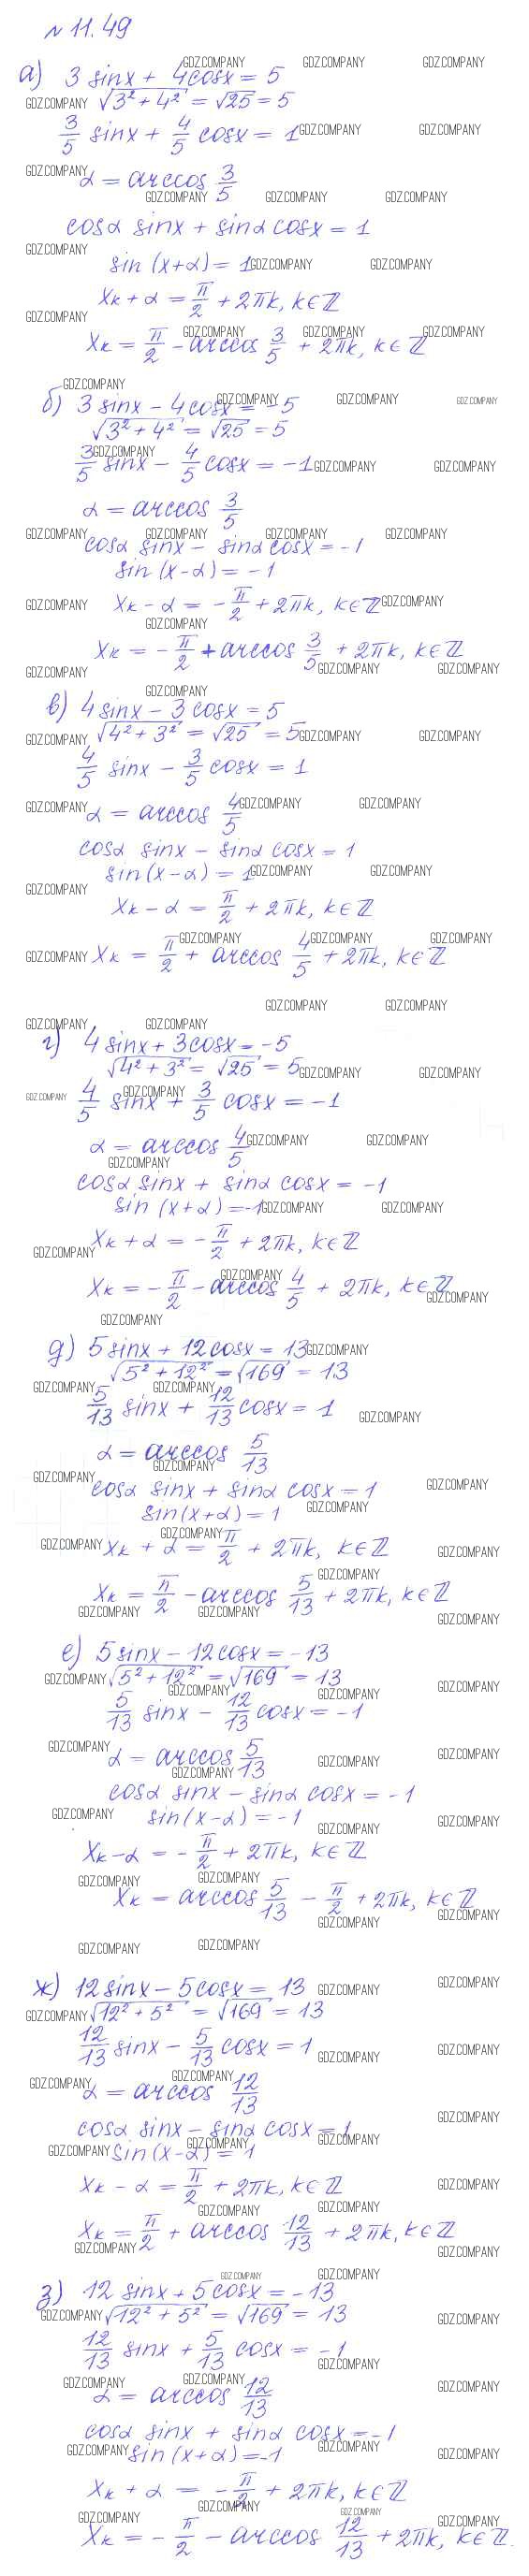 № 11.49
а) 3 sinx + 4cosx = 5
√(3² + 4²) = √25 = 5
3/5 sinx + 4/5 cosx = 1
α = arccos 3/5
cosα sinx + sinα cosx = 1
sin (x+α) = 1
Xк + α = π/2 + 2πk, k∈ℤ
Xк = π/2 - arccos 3/5 + 2πk, k∈ℤ
б) 3 sinx - 4cosx = -5
√(3² + 4²) = √25 = 5
3/5 sinx - 4/5 cosx = -1
α = arccos 3/5
cosα sinx - sinα cosx = -1
sin (x-α) = -1
Xк - α = -π/2 + 2πk, k∈ℤ
Xк = -π/2 + arccos 3/5 + 2πk, k∈ℤ
в) 4 sinx - 3cosx = 5
√(4² + 3²) = √25 = 5
4/5 sinx - 3/5 cosx = 1
α = arccos 4/5
cosα sinx - sinα cosx = 1
sin (x-α) = 1
Xк - α = π/2 + 2πk, k∈ℤ
Xк = π/2 + arccos 4/5 + 2πk, k∈ℤ
г) 4 sinx + 3cosx = -5
√(4² + 3²) = √25 = 5
4/5 sinx + 3/5 cosx = -1
α = arccos 4/5
cosα sinx + sinα cosx = -1
sin (x+α) = -1
Xк + α = -π/2 + 2πk, k∈ℤ
Xк = -π/2 - arccos 4/5 + 2πk, k∈ℤ
д) 5 sinx + 12cosx = 13
√(5² + 12²) = √169 = 13
5/13 sinx + 12/13 cosx = 1
α = arccos 5/13
cosα sinx + sinα cosx = 1
sin(x+α) = 1
Xк + α = π/2 + 2πk, k∈ℤ
Xк = π/2 - arccos 5/13 + 2πk, k∈ℤ
е) 5 sinx - 12cosx = -13
√(5² + 12²) = √169 = 13
5/13 sinx - 12/13 cosx = -1
α = arccos 5/13
cosα sinx - sinα cosx = -1
sin(x-α) = -1
Xк - α = -π/2 + 2πk, k∈ℤ
Xк = arccos 5/13 - π/2 + 2πk, k∈ℤ
ж) 12 sinx - 5cosx = 13
√(12² + 5²) = √169 = 13
12/13 sinx - 5/13 cosx = 1
α = arccos 12/13
cosα sinx - sinα cosx = 1
sin (x-α) = 1
Xк - α = π/2 + 2πk, k∈ℤ
Xк = π/2 + arccos 12/13 + 2πk, k∈ℤ
з) 12 sinx + 5cosx = -13
√(12² + 5²) = √169 = 13
12/13 sinx + 5/13 cosx = -1
α = arccos 12/13
cosα sinx + sinα cosx = -1
sin (x+α) = -1
Xк + α = -π/2 + 2πk, k∈ℤ
Xк = -π/2 - arccos 12/13 + 2πk, k∈ℤ
GDZ.COMPANY